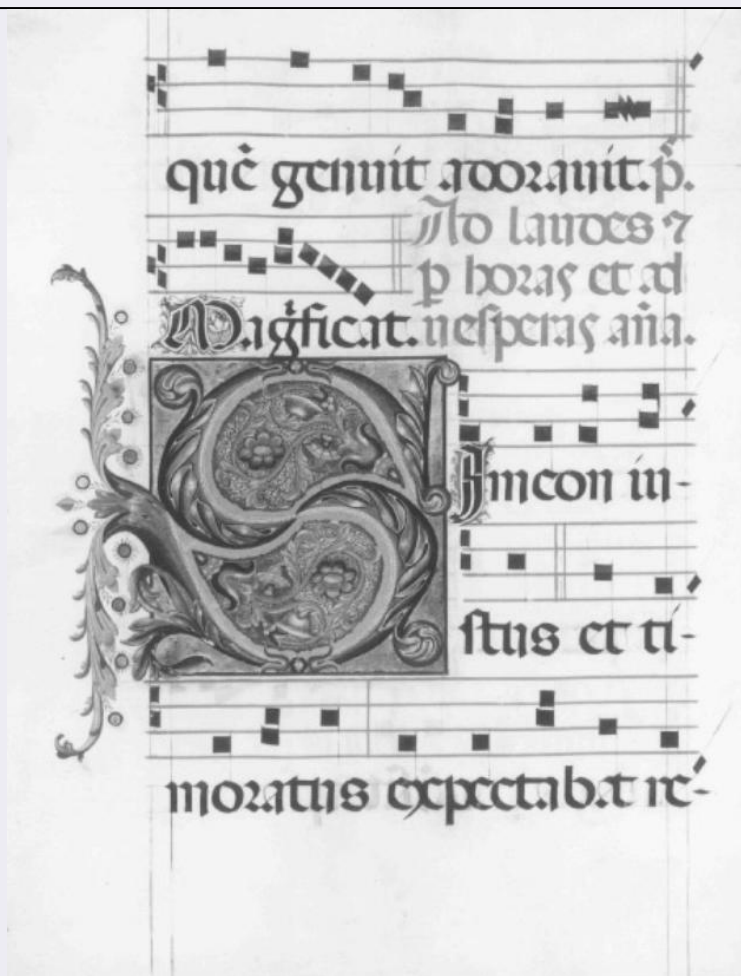 quē genuit adorauit. p̄.
Ad laudes ⁊
p horas et ad
Magʼficat. uesperas an̄a.
Simeon iu-
stus et ti-
moratus expectabat re-